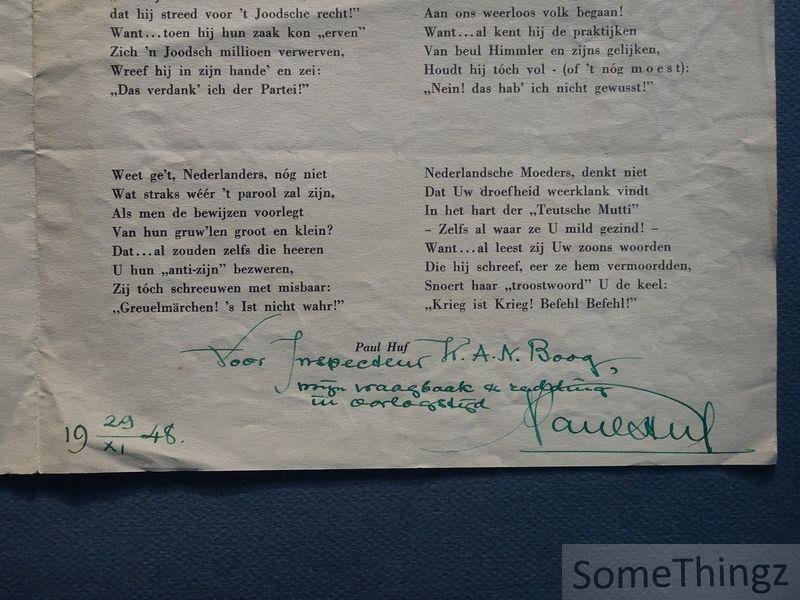 dat hij streed voor 't Joodsche recht!"
Want...toen hij hun zaak kon „erven"
Zich 'n Joodsch millioen verwerven,
Wreef hij in zijn hande' en zei:
„Das verdank' ich der Partei!"
Weet ge't, Nederlanders, nóg niet
Wat straks wéér 't parool zal zijn,
Als men de bewijzen voorlegt
Van hun gruw'len groot en klein?
Dat...al zouden zelfs die heeren
U hun „anti-zijn" bezweren,
Zij tóch schreeuwen met misbaar:
„Greuelmärchen! 's Ist nicht wahr!"
Aan ons weerloos volk begaan!
Want...al kent hij de praktijken
Van beul Himmler en zijns gelijken,
Houdt hij tóch vol - (of 't nóg moest):
„Nein! das hab' ich nicht gewusst!"
Nederlandsche Moeders, denkt niet
Dat Uw droefheid weerklank vindt
In het hart der „Teutsche Mutti"
- Zelfs al waar ze U mild gezind! -
Want...al leest zij Uw zoons woorden
Die hij schreef, eer ze hem vermoordden,
Snoert haar „troostwoord" U de keel:
„Krieg ist Krieg! Befehl Befehl!"
Paul Huf
Voor Inspecteur K. A. N. Boog,
mijn vraagbaak & redding
in oorlogstijd
Paul Huf
19 29/XI 48.
SomeThingz